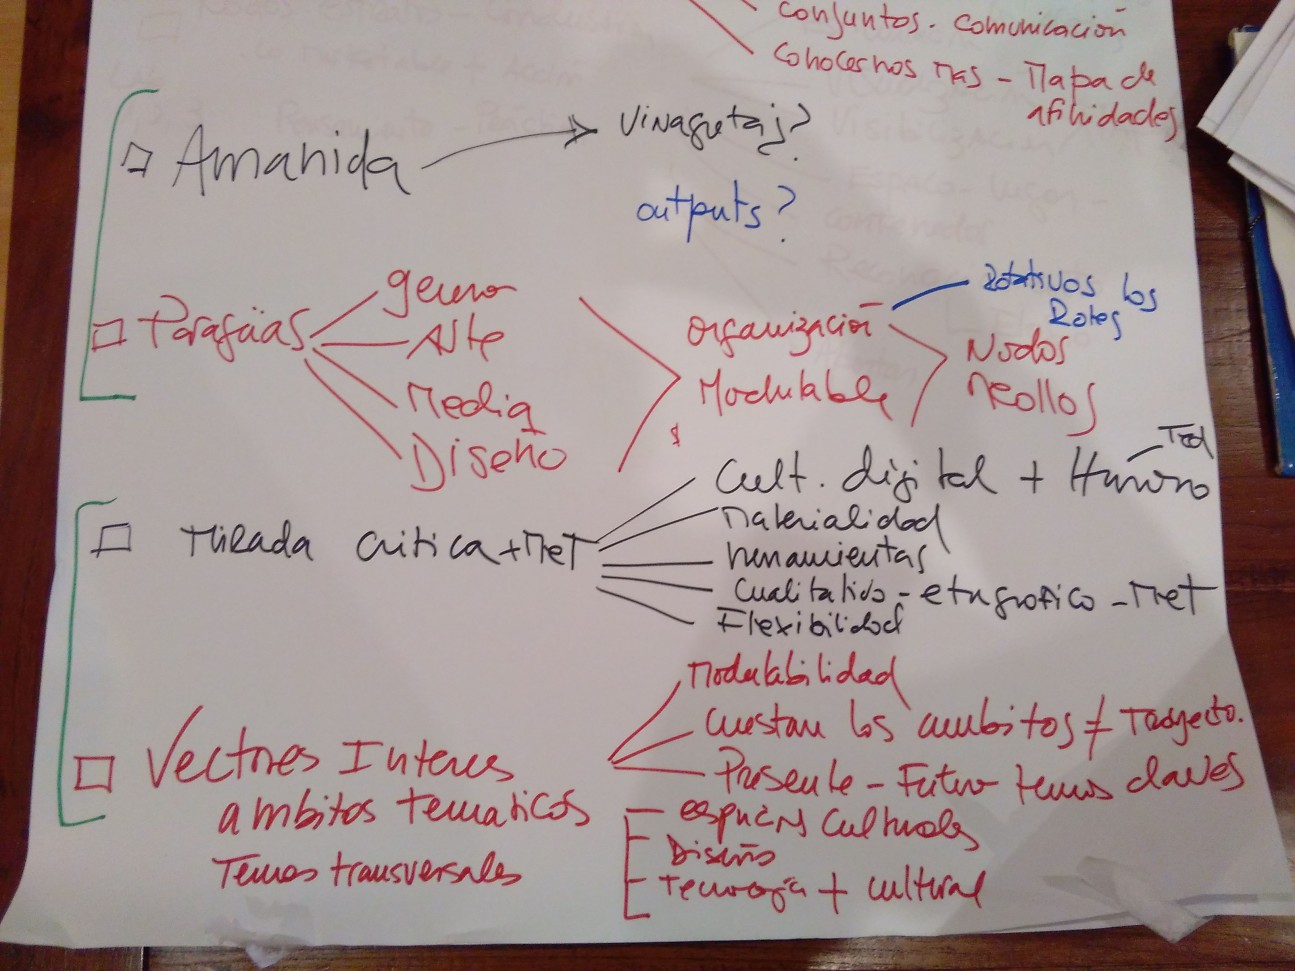 conjuntos. comunicación
conocernos mas - Mapa de
afinidades
Amanida
Vinagretas?
outputs?
genero
Arte
Media
Diseño
organización
Modulable
Rotativos los
Roles
Nodos
Meollos
Cult. digital + Humano
Materialidad
herramientas
Cualitativo - etnografico - Met
Flexibilidad
Mirada critica + Met
Modulabilidad
Vectores Interes
ambitos tematicos
Temas transversales
los ambitos ≠ Trayecto.
Presente - Futuro temas claves
espacios Culturales
Diseño
Tecnología + cultural